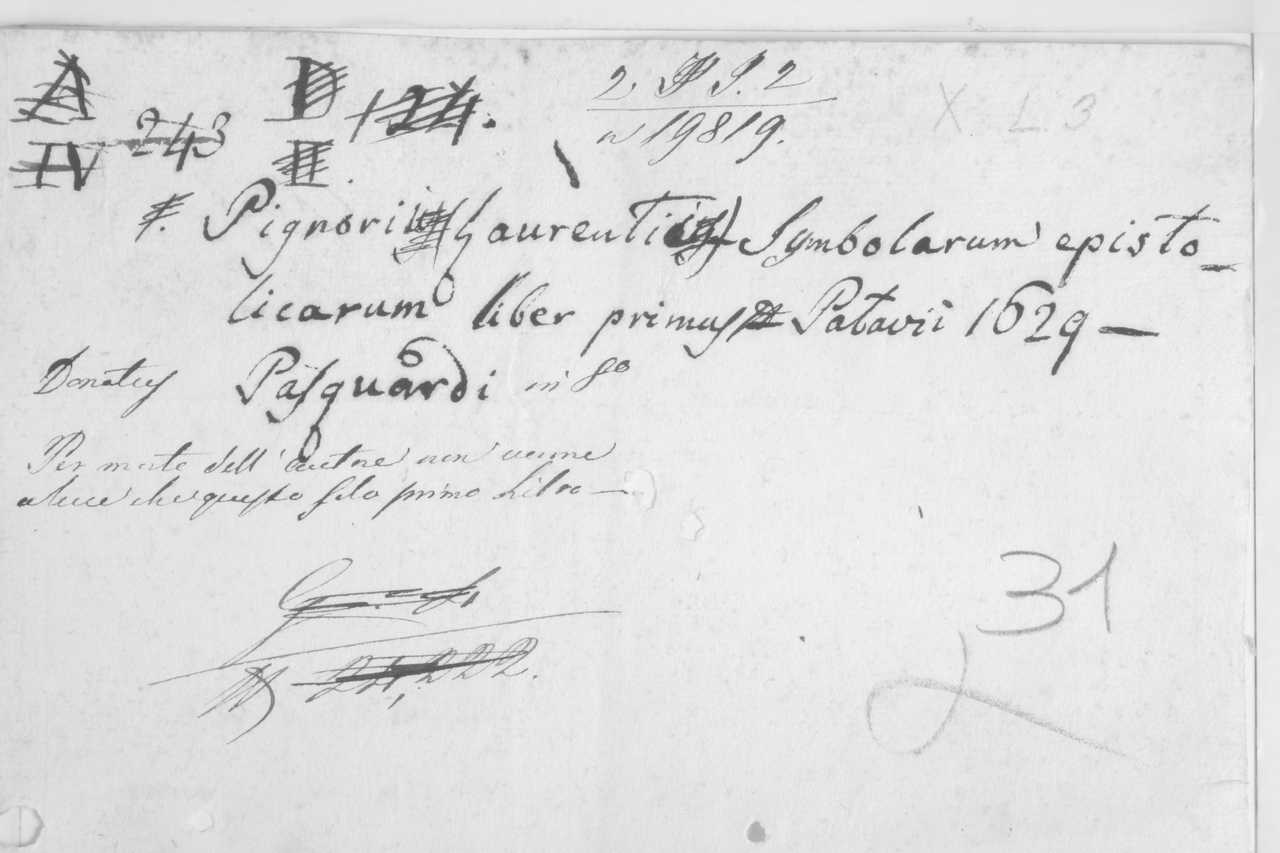 A 243 D +24. 2. P. 2
IV II n 19819. X L 3
Pignorii (Laurentii) Symbolarum episto-
licarum liber primus Patavii 1629 —
Donatus Pasquardi in 8º
Per morte dell' autore non venne
a luce che questo solo primo Libro —
31
24,222.
L